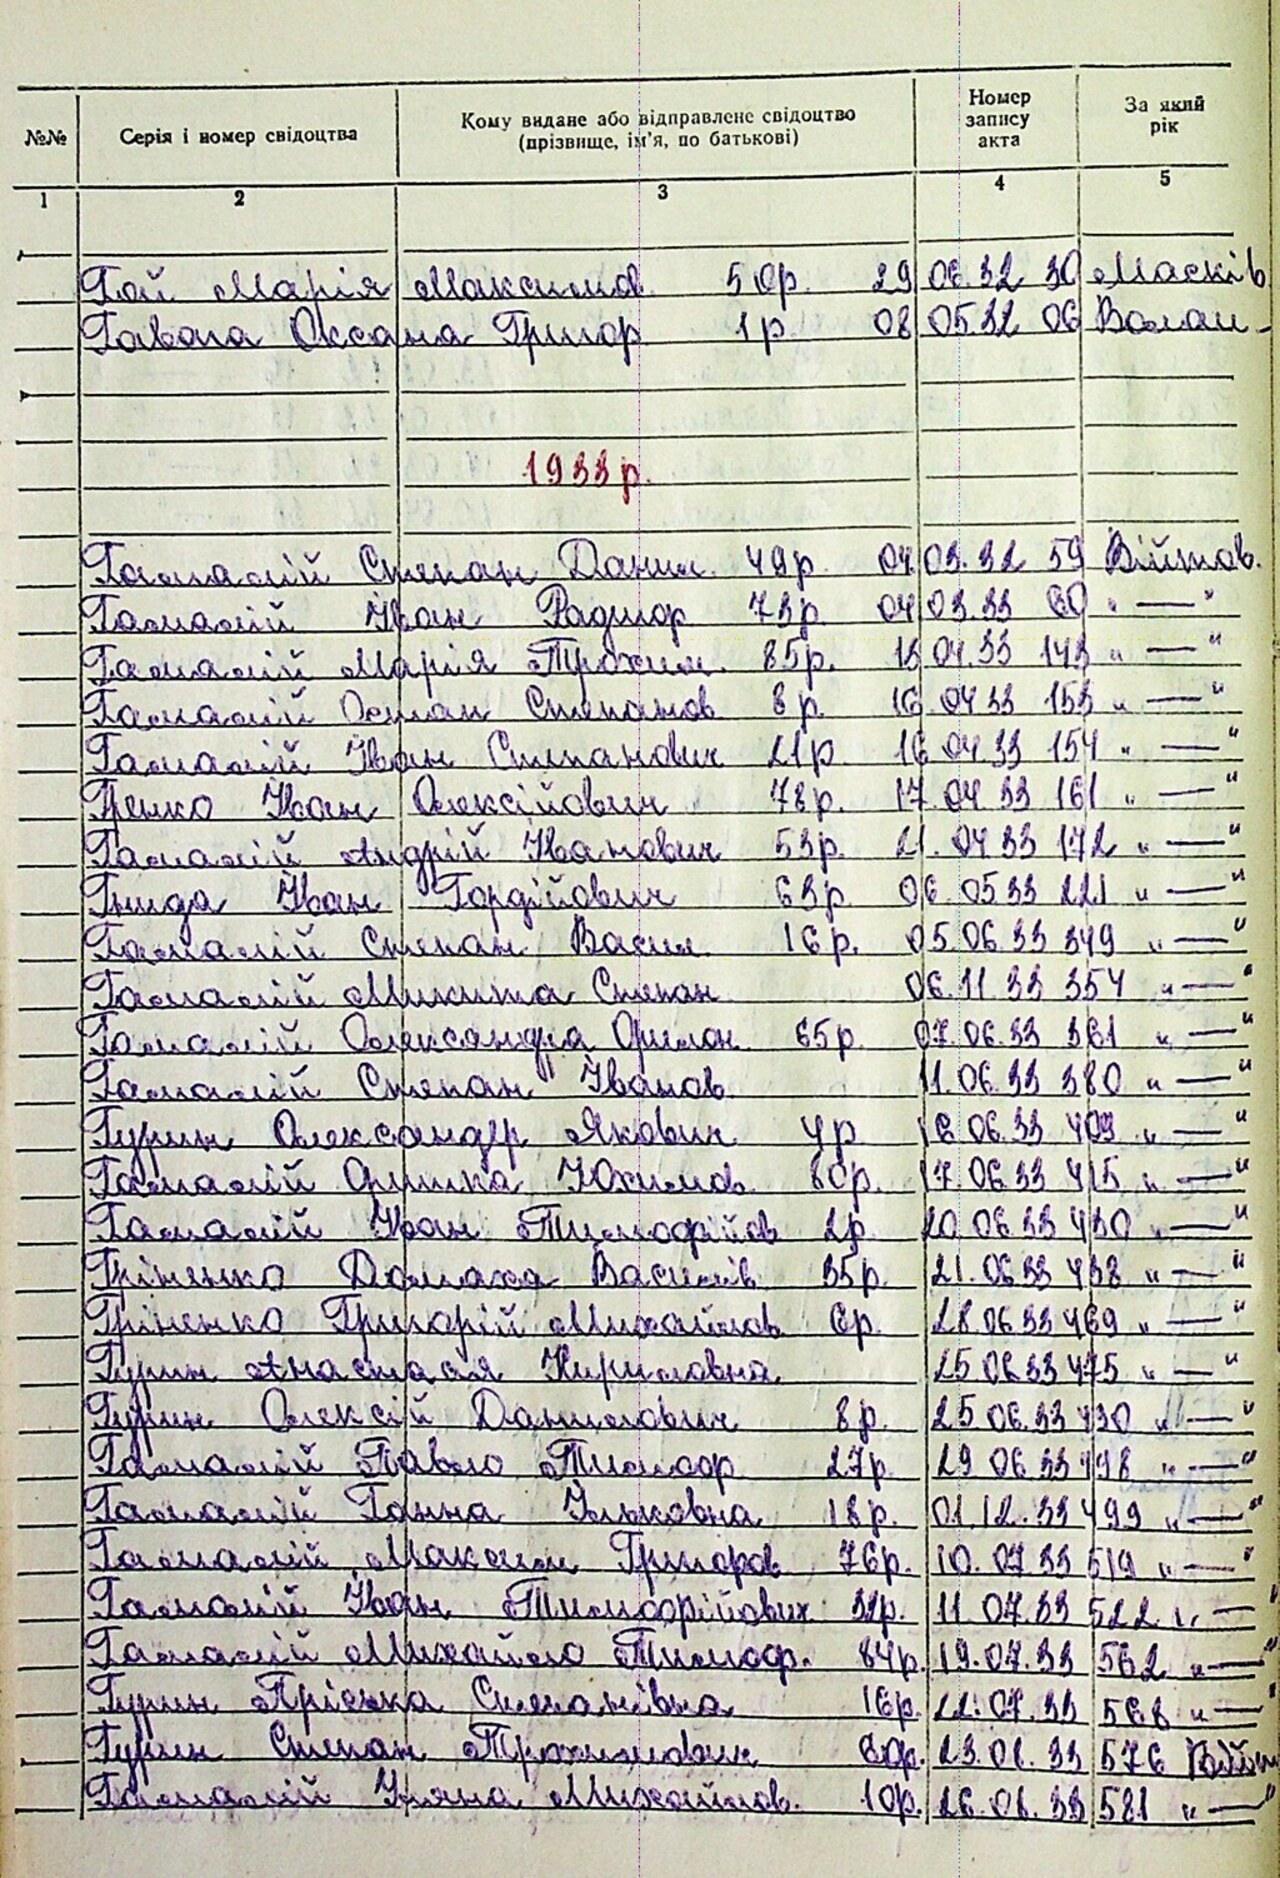 №№ Серія і номер свідоцтва Кому видане або відправлене свідоцтво (прізвище, ім'я, по батькові) Номер запису акта За який рік
1 2 3 4 5
Гой Марія Максимов 50р. 29 06.32 30 Маскiв
Гавага Оксана Григор 1р. 08 05 32 06 Волаи-
1933р.
Гамалій Степан Данил. 49р. 04 03.32 59 Війтов.
Гамалій Іван Радигор 73р 04 03.33 60 "—"
Гамалій Марія Трохим. 85р. 15 04.33 143 "—"
Гамалій Остап Степанов 8р. 16 04 33 153 "—"
Гамалій Іван Степанович 21р 16 04 33 154 "—"
Гречко Іван Олексійович 78р. 17 04 33 161 "—"
Гамалій Андрій Іванович 53р. 21. 04 33 172 "—"
Гнида Іван Гордійович 63р 06. 05 33 221 "—"
Гамалій Степан Васил. 16р. 05.06.33 349 "—"
Гамалій Микита Степан 06.11.33 354 "—"
Гамалій Олександра Филон. 65р. 07.06.33 361 "—"
Гамалій Степан Іванов 11.06.33 380 "—"
Гурин Олександр Якович 4р 16 06.33 409 "—"
Гамалій Оришка Юхимов. 60р. 17.06.33 415 "—"
Гамалій Іван Тимофійов 2р. 20.06.33 430 "—"
Гріненко Домаха Василів. 35р. 21.06.33 438 "—"
Гріненко Григорій Михайлов. 6р. 28.06.33 469 "—"
Гурин Анастасія Кириловна 25 06 33 475 "—"
Гурин Олексій Данилович 8р. 25.06.33 430 "—"
Гамалій Павло Тимоф 27р. 29 06 33 498 "—"
Гамалій Ганна Ільковна 18р. 01.12.33 499 "—"
Гамалій Максим Григоров 76р. 10.07.33 519 "—"
Гамалій Іван Тимофійович 32р. 11.07.33 522 "—"
Гамалій Михайло Тимоф. 64р. 19.07.33 562 "—"
Гурин Пріська Степанівна 16р. 22.07.33 568 "—"
Гурин Степан Трохимович 60р. 23.08.33 576 Війт
Гамалій Уляна Михайлов. 10р. 26.08.33 581 "—"